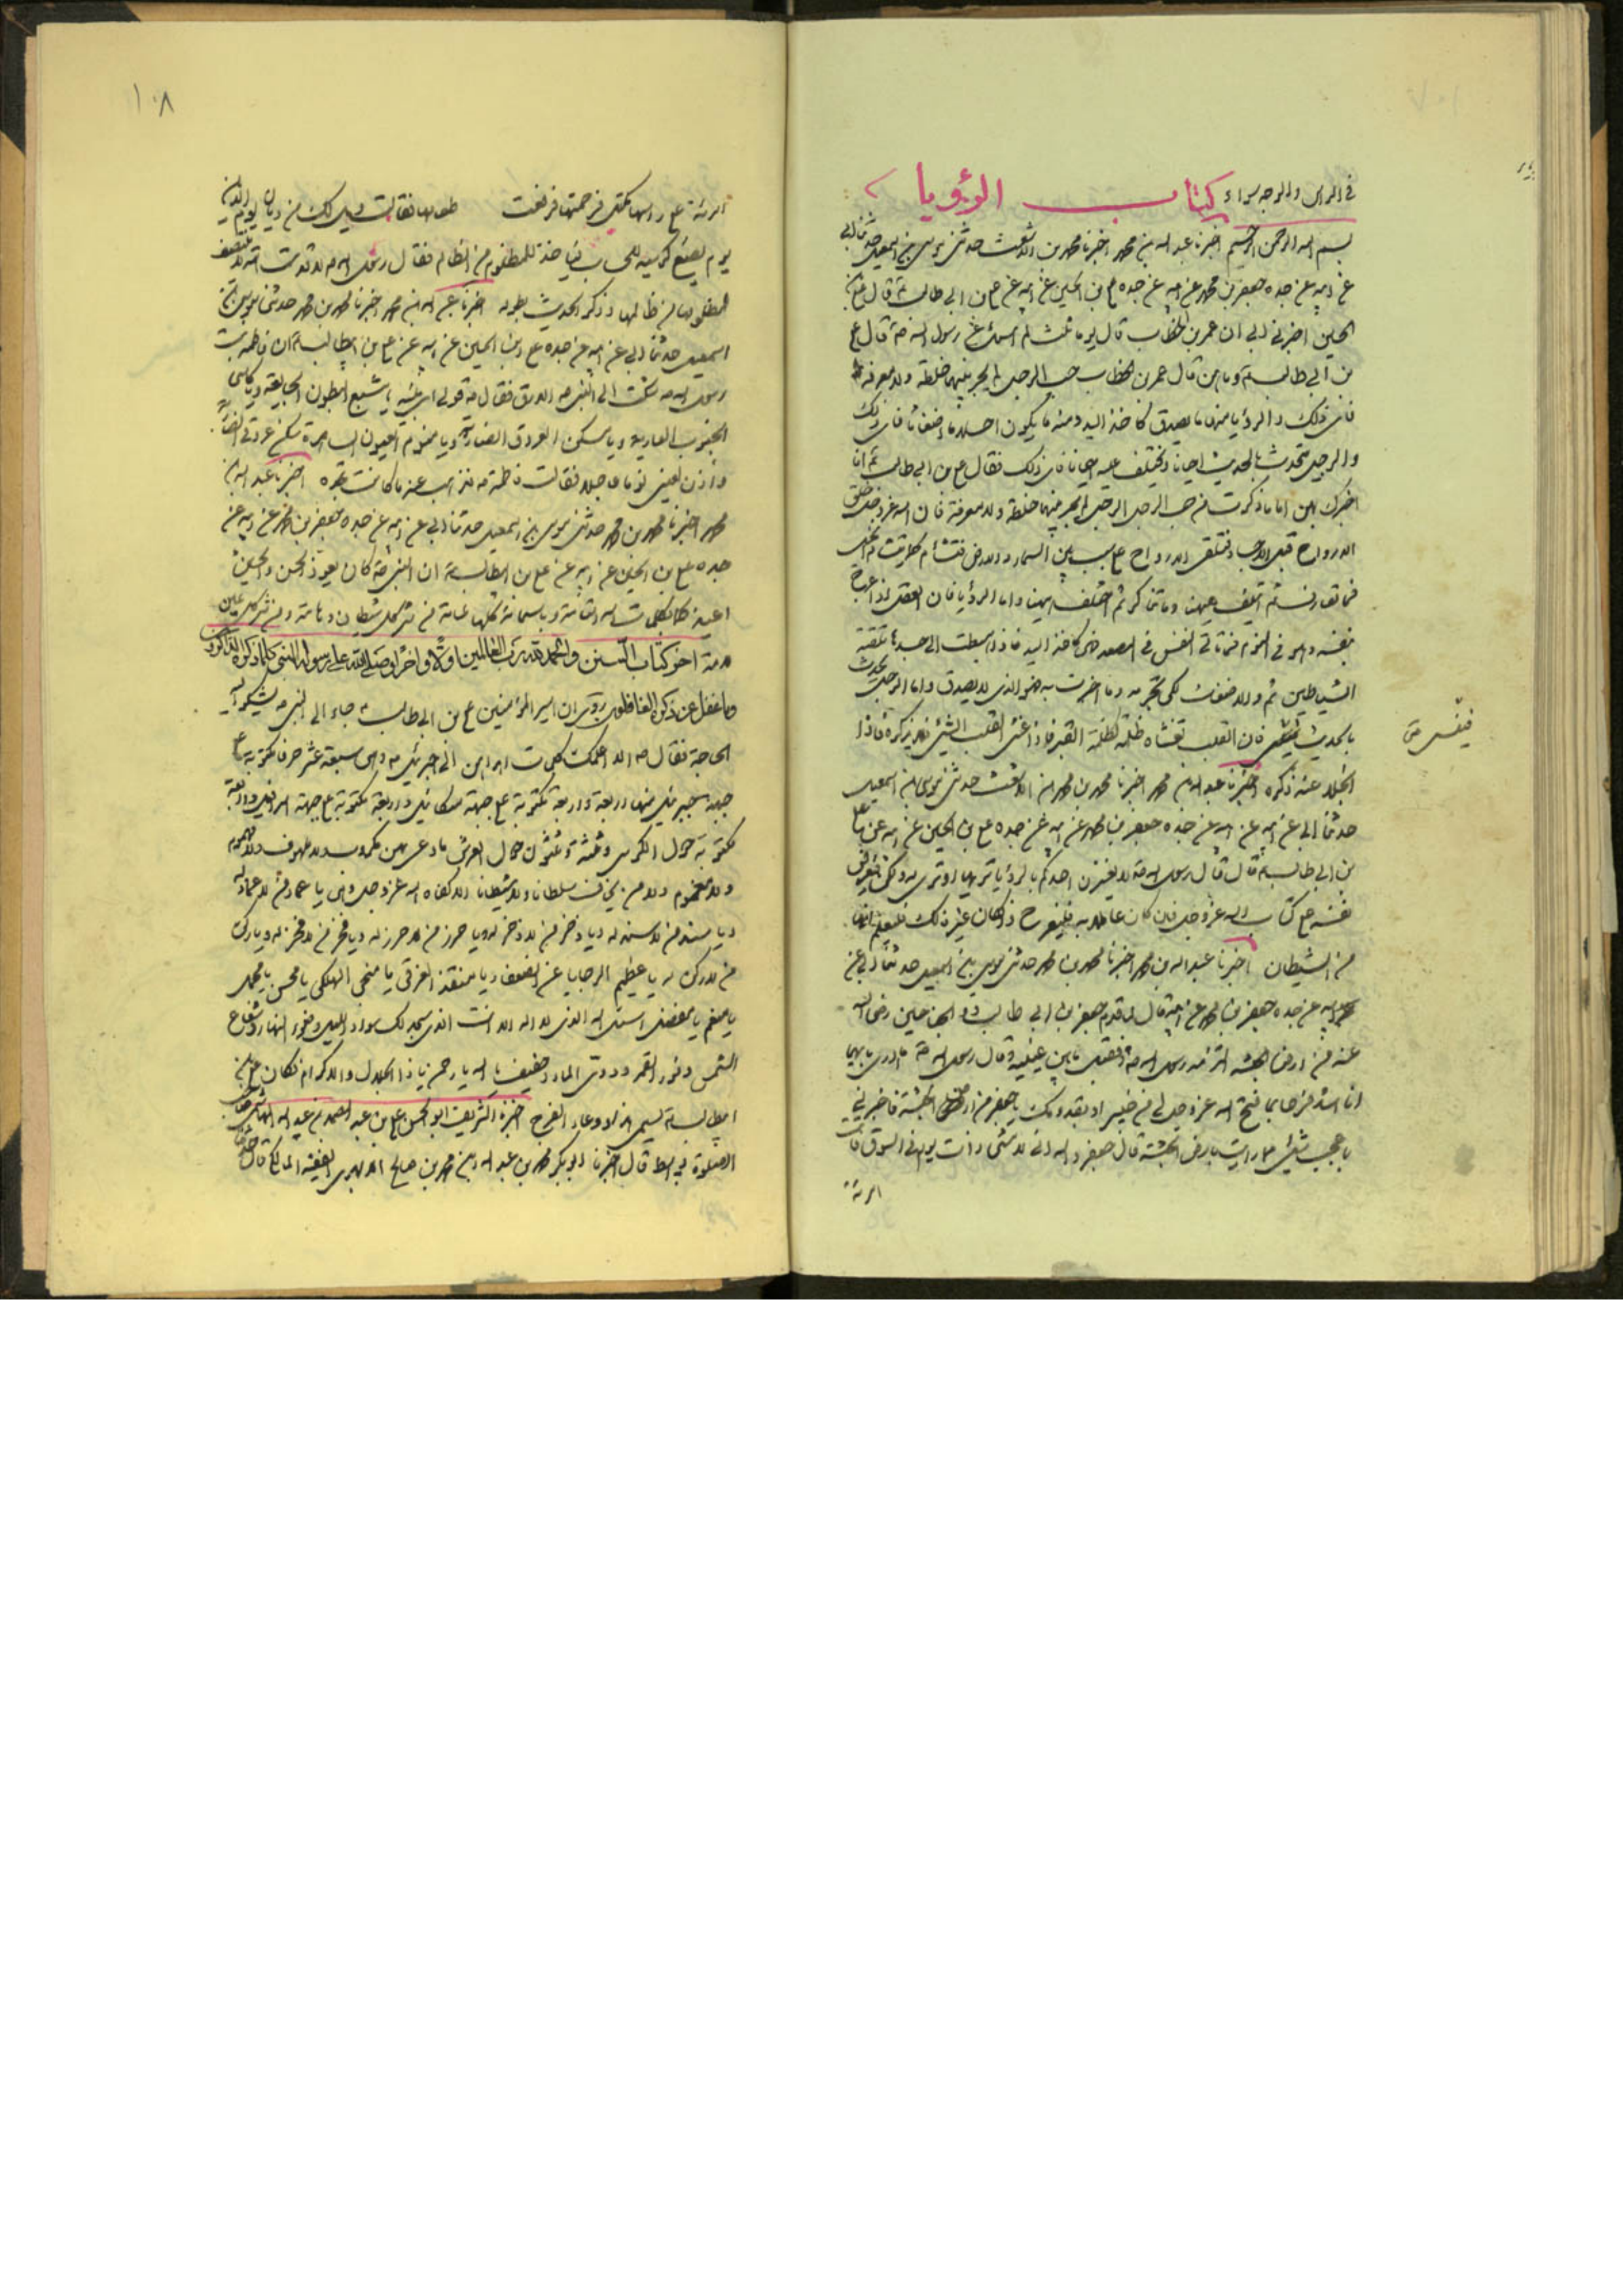 في الراس والوجه سواء كتاب الرؤيا
بسم الله الرحمن الرحيم اخبرنا عبد الله بن محمد اخبرنا محمد بن الاشعث حدثني موسى بن اسمعيل حدثنا ابي
عن ابيه عن جده جعفر بن محمد عن ابيه عن جده علي بن الحسين عن ابيه عن علي بن ابي طالب قال علي بن
الحسين اخبرني ابي ان عمر بن الخطاب قال يوما ثلث لم اسئل عن رسول الله قال علي
بن ابي طالب وما هن قال عمر بن الخطاب حب الرجل لم يجر بينهما خلطة ولا معرفة
فانى ذلك والرؤيا منها ما يصدق كاخذ اليد ومنه ما يكون احلاما اضغاثا فانى ذلك
والرجل يتحدث بالحديث احيانا ويختلف عليه احيانا فانى ذلك فقال علي بن ابي طالب انا
اخبرك بهن اما ما ذكرت من حب الرجل الرجل لم يجر بينهما خلطة ولا معرفة فان الله عز وجل خلق
الارواح قبل الاجساد فتلتقي الارواح على باب بين السماء والارض فتشام كما تشام الخيل
فما تعارف ثم ائتلف ههنا وما تناكر ثم اختلف ههنا واما الرؤيا فان العقل اذا عرج
بنفسه وهو في النوم فما تلقى النفس في المصعد فهي كاخذ اليد فاذا هبطت الى جسدها تلقته
الشياطين ثم والاضغاث لكي تحزنه وما اخبرت به فهو الذي لا يصدق واما الرجل يتحدث
بالحديث فينسى فان القلب تغشاه ظلمة كظلمة القبر فاذا غشى القلب الشيء لم يذكره فاذا
انجلا عنه ذكره اخبرنا عبد الله بن محمد اخبرنا محمد بن محمد بن الاشعث حدثني موسى بن اسمعيل
حدثنا ابي عن ابيه عن جده جعفر بن محمد عن ابيه عن جده علي بن الحسين عن ابيه عن علي
بن ابي طالب قال قال رسول الله لا يغترن احدكم بالرؤيا يريها او ترى له ولكن ليعرض
نفسه على كتاب الله عز وجل فان كان عاملا به فليفرح وان كان غير ذلك فليعلم انها
من الشيطان اخبرنا عبد الله بن محمد اخبرنا محمد بن محمد حدثني موسى بن اسمعيل حدثنا ابي عن
ابيه عن جده جعفر بن محمد عن ابيه قال لما قدم جعفر بن ابي طالب ذو الجناحين رضي الله
عنه من ارض الحبشة التزمه رسول الله فقبل ما بين عينيه وقال رسول الله ما ادري بايهما
انا اشد فرحا بما فتح الله عز وجل لي من خيبر او بقدومك يا جعفر من ارض الحبشة فاخبرني
باعجب شيء مما رايت بارض الحبشة قال جعفر والله اني لامشي ذات يوم في السوق فان
امرئة
فينسى
١٠٨
امرئة على راسها مكتل فزحمتها فرفعت طعامها فقالت ويل لك من ديان يوم الدين
يوم يضع كرسيه للحساب فياخذ للمظلوم من الظالم فقال رسول الله لا قدست امة لا ينتصف
لمظلومها من ظالمها وذكر الحديث بطوله اخبرنا عبد الله بن محمد اخبرنا محمد بن محمد حدثني موسى بن
اسمعيل حدثنا ابي عن ابيه عن جده علي بن الحسين عن ابيه عن علي بن ابيطالب ان فاطمة بنت
رسول الله شكت الى النبي الارق فقال قولي اي بنيه يا مشبع البطون الجايعة ويا كاسي
الجنوب العارية ويا مسكن العروق الضاربة ويا منوم العيون الساهرة سكن عروقي الضاربة
واذن لعيني نوما عاجلا فقالت فاطمة فذهب عنها ما كانت تجده اخبرنا عبد الله بن
محمد اخبرنا محمد بن محمد حدثني موسى بن اسمعيل حدثنا ابي عن ابيه عن جده جعفر بن محمد عن ابيه عن
جده علي بن الحسين عن ابيه عن علي بن ابيطالب ان النبي كان يعوذ الحسن والحسين
اعيذكما بكلمات الله التامة وباسمائه كلها عامة من شر كل شيطان وهامة ومن شر كل عين
لامة اخر كتاب السنن والحمد لله رب العالمين اولا واخرا وصلى الله على رسوله النبي كلما ذكره الذاكرون
وما غفل عن ذكره الغافلون روى ان امير المؤمنين علي بن ابي طالب جاء الى النبي يشكو اليه
الحاجة فقال الا اعلمك كلمات اهداهن الي جبرئيل وهن سبعة عشر حرفا مكتوبة على
جبهة جبرئيل منها اربعة واربعة مكتوبة على جبهة ميكائيل واربعة مكتوبة على جبهة اسرافيل واربعة
مكتوبة حول الكرسي وثلثة وعشرون حول العرش ما دعى بهن مكروب ولا ملهوف ولا مهموم
ولا مغموم ولا من يخاف سلطانا ولا شيطانا الا كفاه الله عز وجل وهي يا عماد من لا عماد له
ويا سند من لا سند له ويا ذخر من لا ذخر له ويا حرز من لا حرز له ويا فخر من لا فخر له ويا ركن
من لا ركن له يا عظيم الرجايا عن الضعفاء ويا منقذ الغرقى يا منجي الهلكى يا محسن يا مجمل
يا منعم يا مفضل اسئل الله الذي لا اله الا انت الذي سجد لك سواد الليل وضوء النهار وشعاع
الشمس ونور القمر ودوى الماء وحفيف يا الله يا رحمن يا ذا الجلال والاكرام فكان علي بن
ابيطالب يسمى هذا دعاء الفرج اخبرنا الشريف ابو الحسن علي بن عبد الصمد بن عبيد الله الهاشمي صاحب
الصلوة بواسط قال اخبرنا ابو بكر محمد بن عبد الله بن محمد بن صالح الابهري الفقيه المالكي قال حدثنا